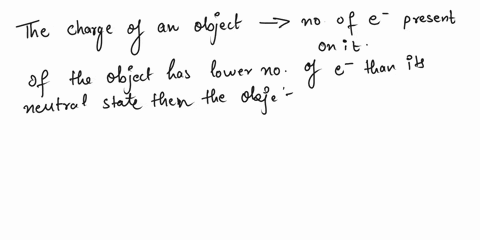 The charge of an object → no of e⁻ present
on it.
If the object has lower no. of e⁻ than its
neutral state then the obje